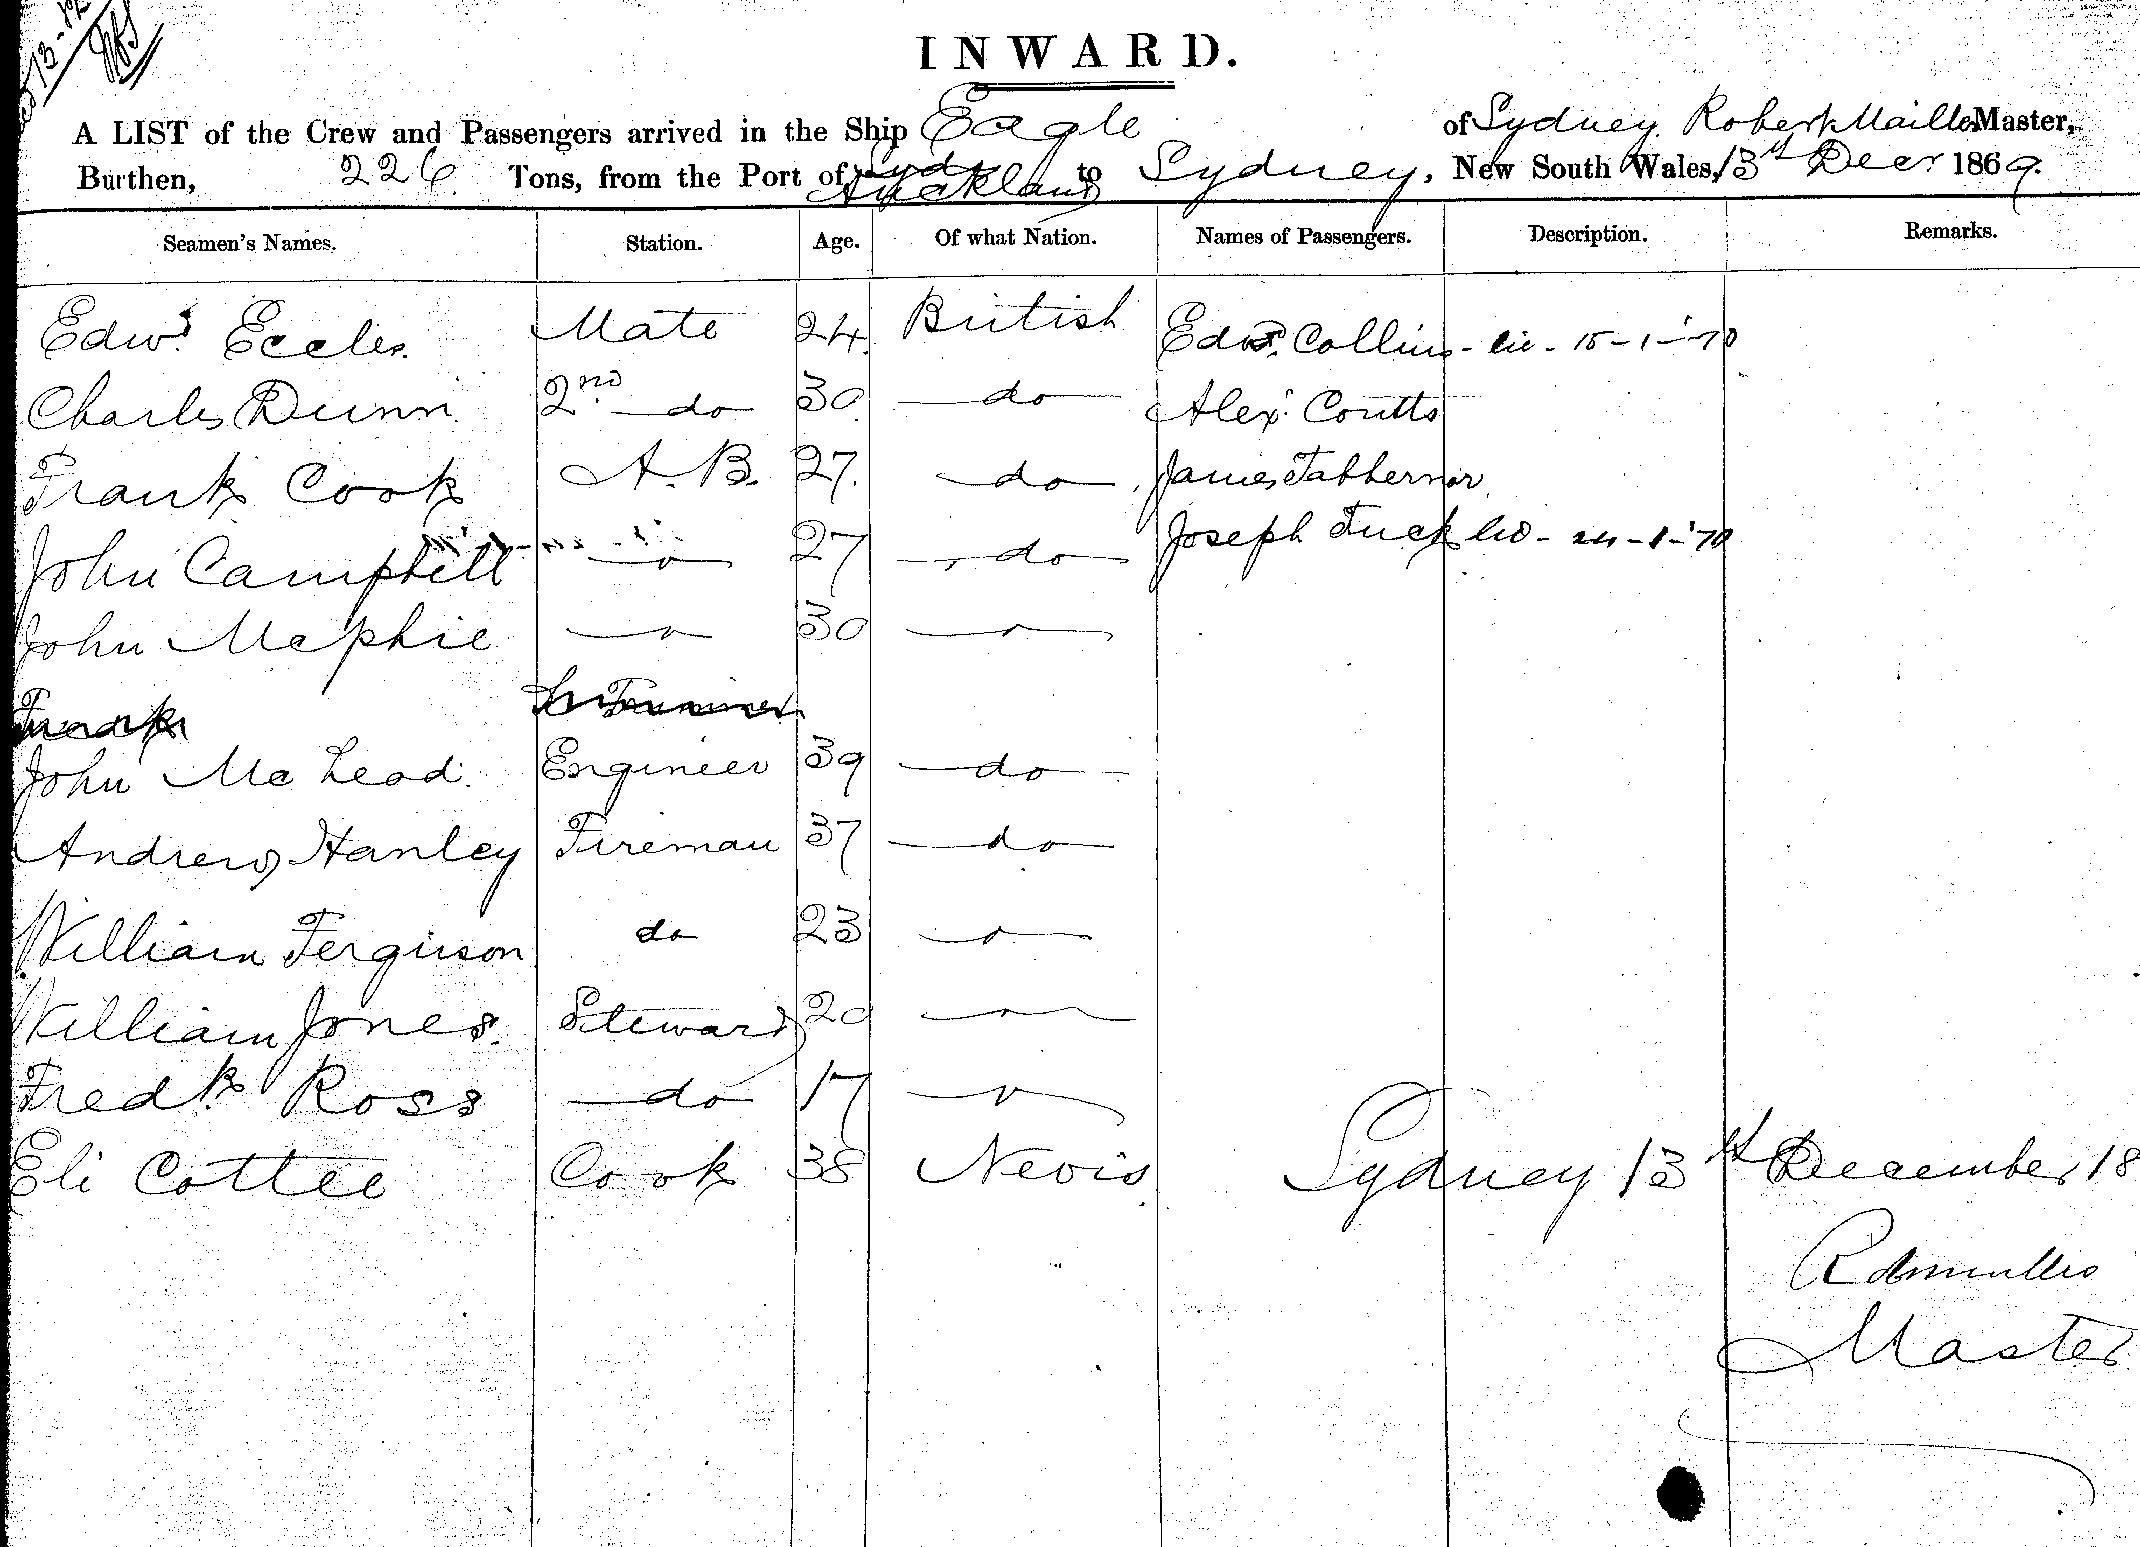 INWARD.
A LIST of the Crew and Passengers arrived in the Ship Eagle of Sydney. Robert Master,
Burthen, 226 Tons, from the Port of Auckland to Sydney, New South Wales, 13th Decr 1869.
Seamen's Names. Station. Age. Of what Nation. Names of Passengers. Description. Remarks.
Edwd. Eccles. Mate 24. British Edwd. Collins - lic - 15-1-'70
Charles Dunn 2nd do 30 do Alexr. Coutts
Frank Cook A.B. 27. do James Tabbernor
John Campbell 27 do Joseph Tuck
John Mcphie 30
Frank
John McLeod. Engineer 39 do
Andrew Hanley Fireman 37 do
William Ferguson do 23
William Jones. Steward 20
Fredk. Ross do 17
Eli Cottee Cook 38 Nevis
Sydney 13th December 18
Master